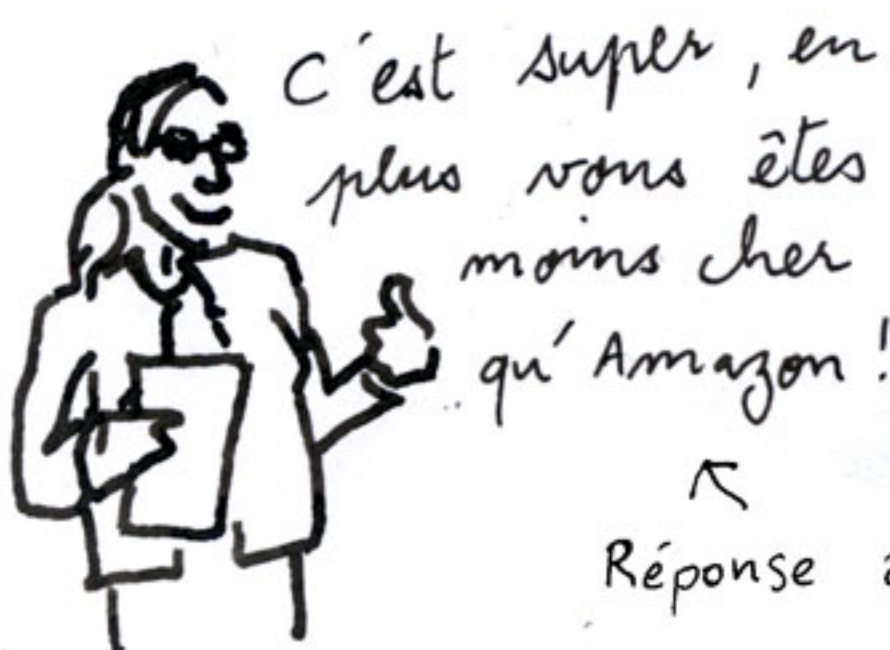 C'est super, en
plus vous êtes
moins cher
qu'Amazon !
Réponse